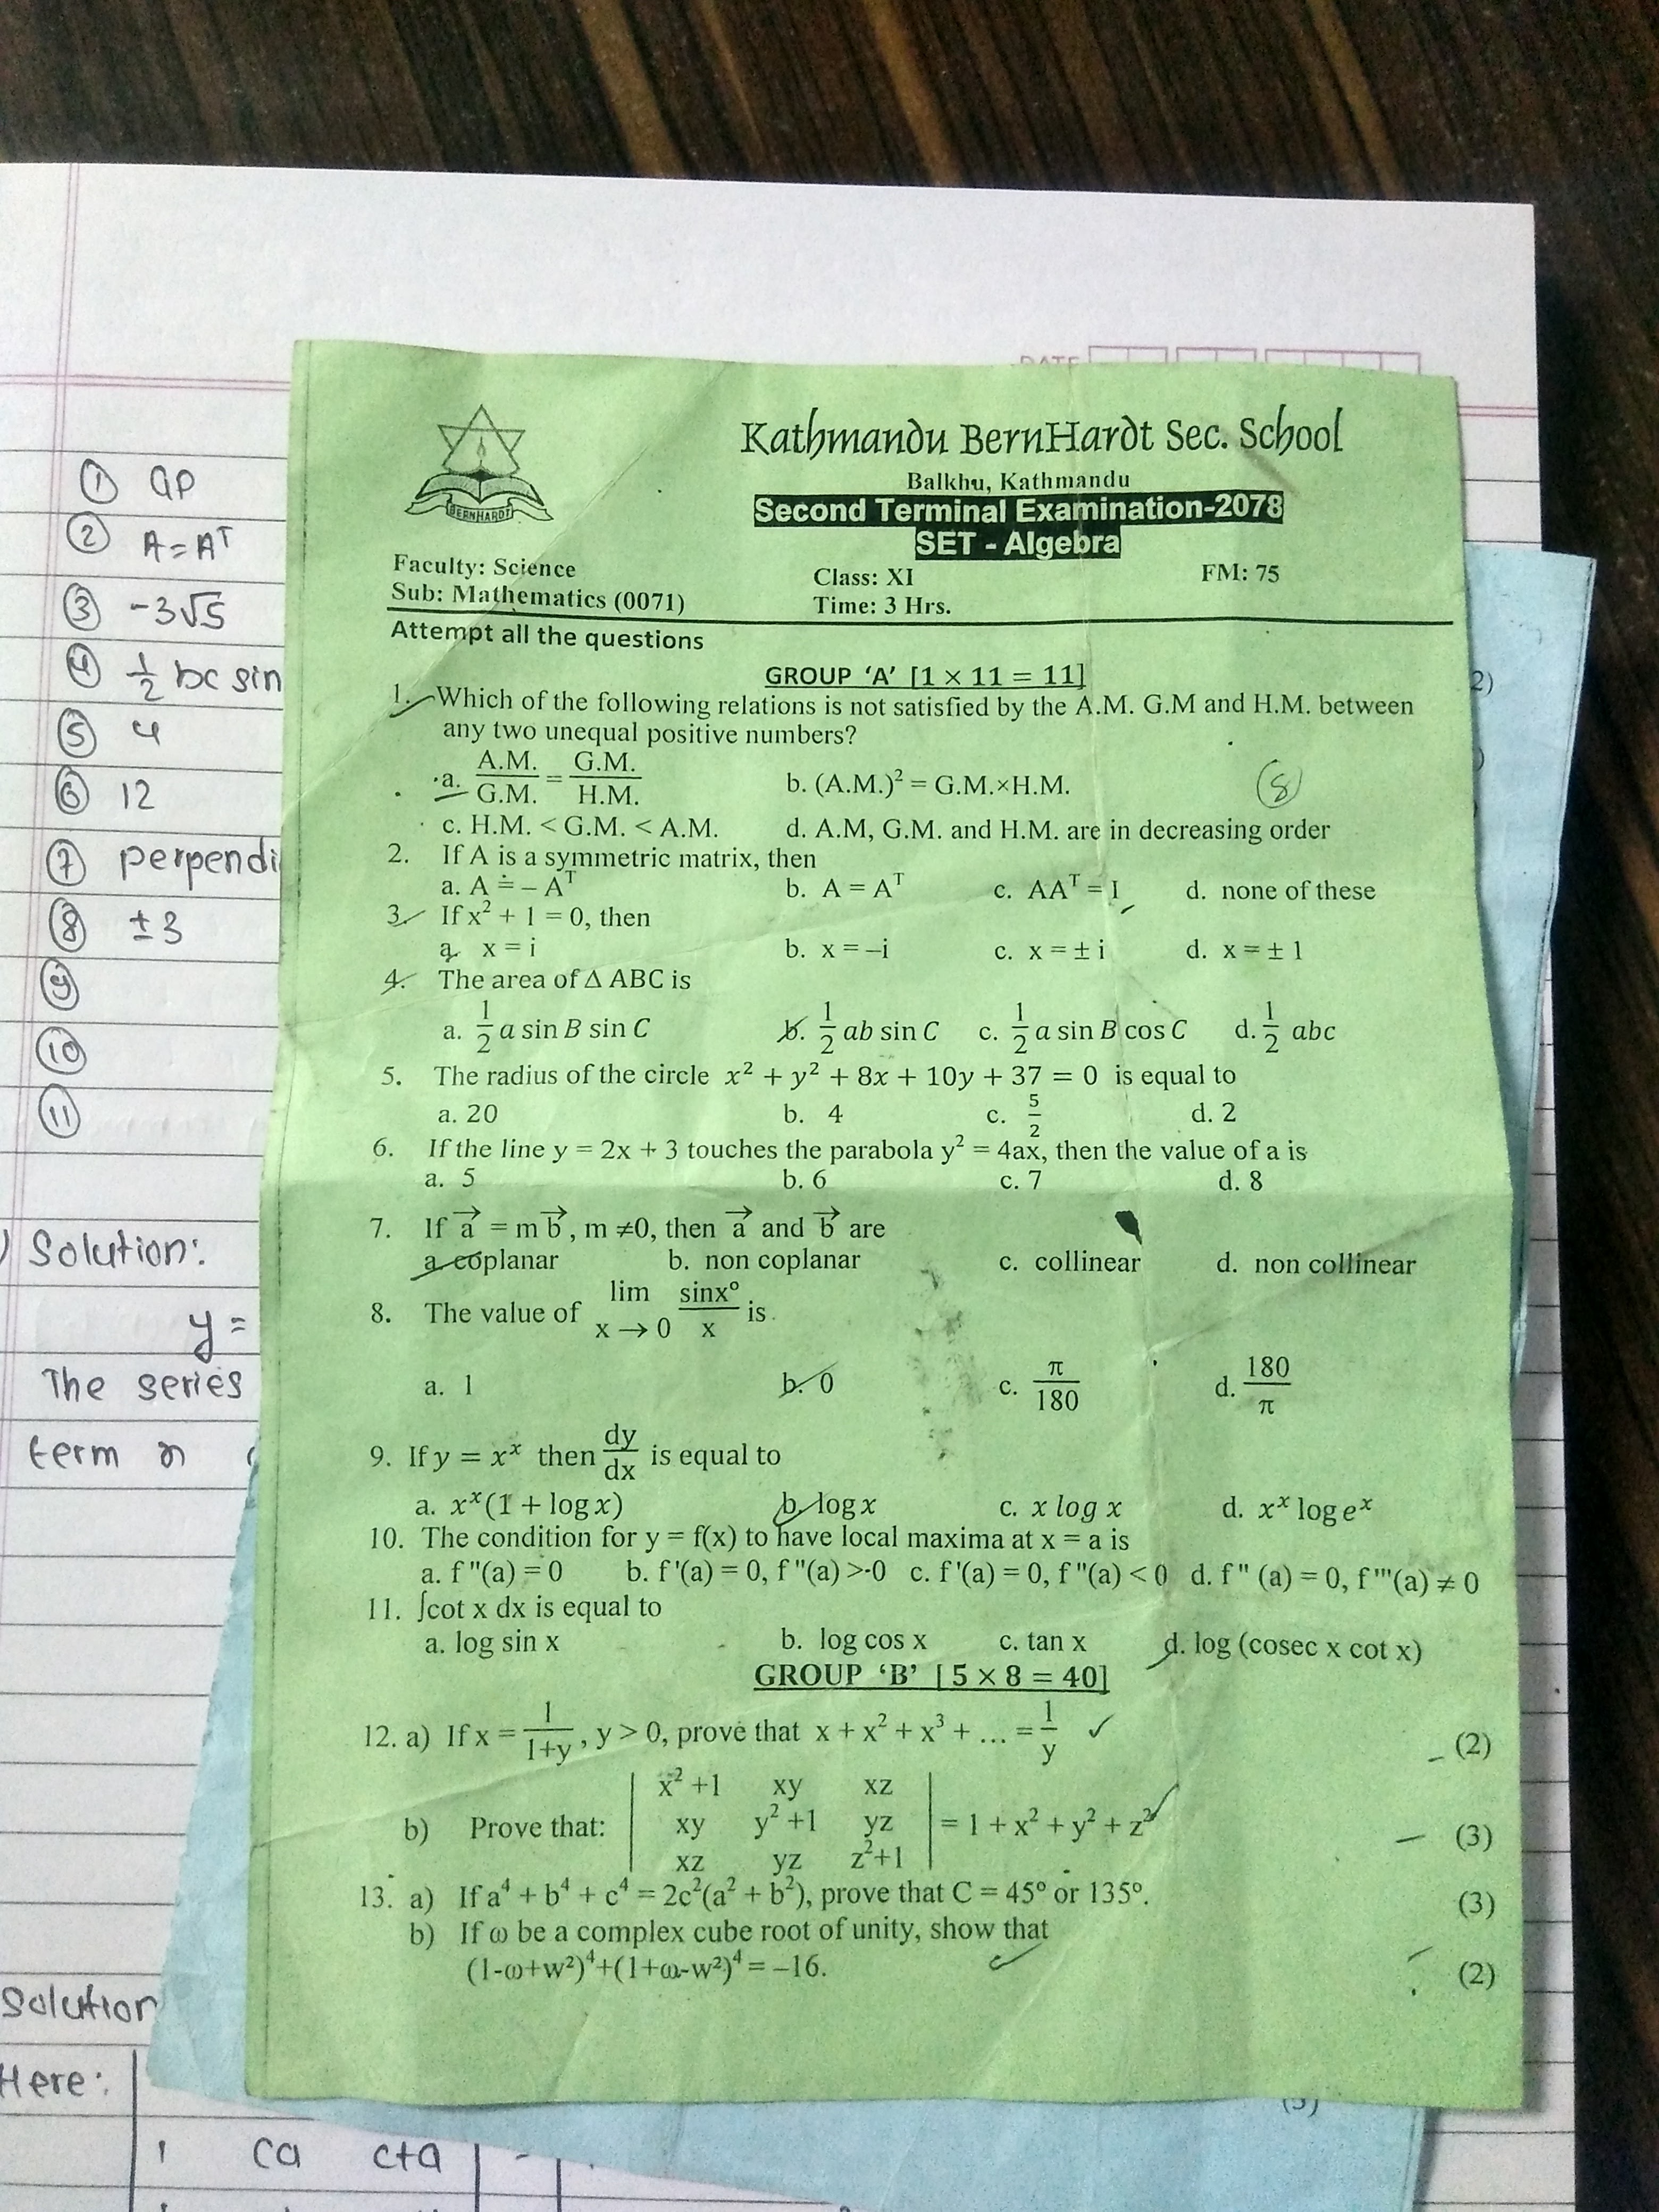 DATE
① GP
② A = Aᵀ
③ -3√5
④ 1/2 bc sin
⑤ 4
⑥ 12
⑦ perpendi
⑧ ±3
⑨
⑩
⑪
) Solution:
y =
The series
term n
Solution
Here:
1 ca c+a
2)
)
(3)
BERNHARDT
Kathmandu BernHardt Sec. School
Balkhu, Kathmandu
Second Terminal Examination-2078
SET - Algebra
Faculty: Science Class: XI FM: 75
Sub: Mathematics (0071) Time: 3 Hrs.
Attempt all the questions
GROUP ‘A’ [1 × 11 = 11]
1. Which of the following relations is not satisfied by the A.M. G.M and H.M. between
any two unequal positive numbers?
a. A.M./G.M. = G.M./H.M. b. (A.M.)² = G.M.×H.M. ⑧
c. H.M. < G.M. < A.M. d. A.M, G.M. and H.M. are in decreasing order
2. If A is a symmetric matrix, then
a. A = – Aᵀ b. A = Aᵀ c. AAᵀ = I d. none of these
3. If x² + 1 = 0, then
a. x = i b. x = –i c. x = ± i d. x = ± 1
4. The area of Δ ABC is
a. 1/2 a sin B sin C b. 1/2 ab sin C c. 1/2 a sin B cos C d. 1/2 abc
5. The radius of the circle x² + y² + 8x + 10y + 37 = 0 is equal to
a. 20 b. 4 c. 5/2 d. 2
6. If the line y = 2x + 3 touches the parabola y² = 4ax, then the value of a is
a. 5 b. 6 c. 7 d. 8
7. If a⃗ = m b⃗ , m ≠0, then a⃗ and b⃗ are
a. coplanar b. non coplanar c. collinear d. non collinear
8. The value of lim x → 0 sinx°/x is
a. 1 b. 0 c. π/180 d. 180/π
9. If y = xˣ then dy/dx is equal to
a. xˣ(1 + log x) b. log x c. x log x d. xˣ log eˣ
10. The condition for y = f(x) to have local maxima at x = a is
a. f "(a) = 0 b. f '(a) = 0, f "(a) > 0 c. f '(a) = 0, f "(a) < 0 d. f " (a) = 0, f "'(a) ≠ 0
11. ∫cot x dx is equal to
a. log sin x b. log cos x c. tan x d. log (cosec x cot x)
GROUP ‘B’ [5 × 8 = 40]
12. a) If x = 1/1+y , y > 0, prove that x + x² + x³ + ... = 1/y ✓ (2)
x² +1 xy xz
b) Prove that: xy y² +1 yz = 1 + x² + y² + z² (3)
xz yz z²+1
13. a) If a⁴ + b⁴ + c⁴ = 2c²(a² + b²), prove that C = 45° or 135°. (3)
b) If ω be a complex cube root of unity, show that
(1-ω+w²)⁴+(1+ω-w²)⁴ = –16. (2)